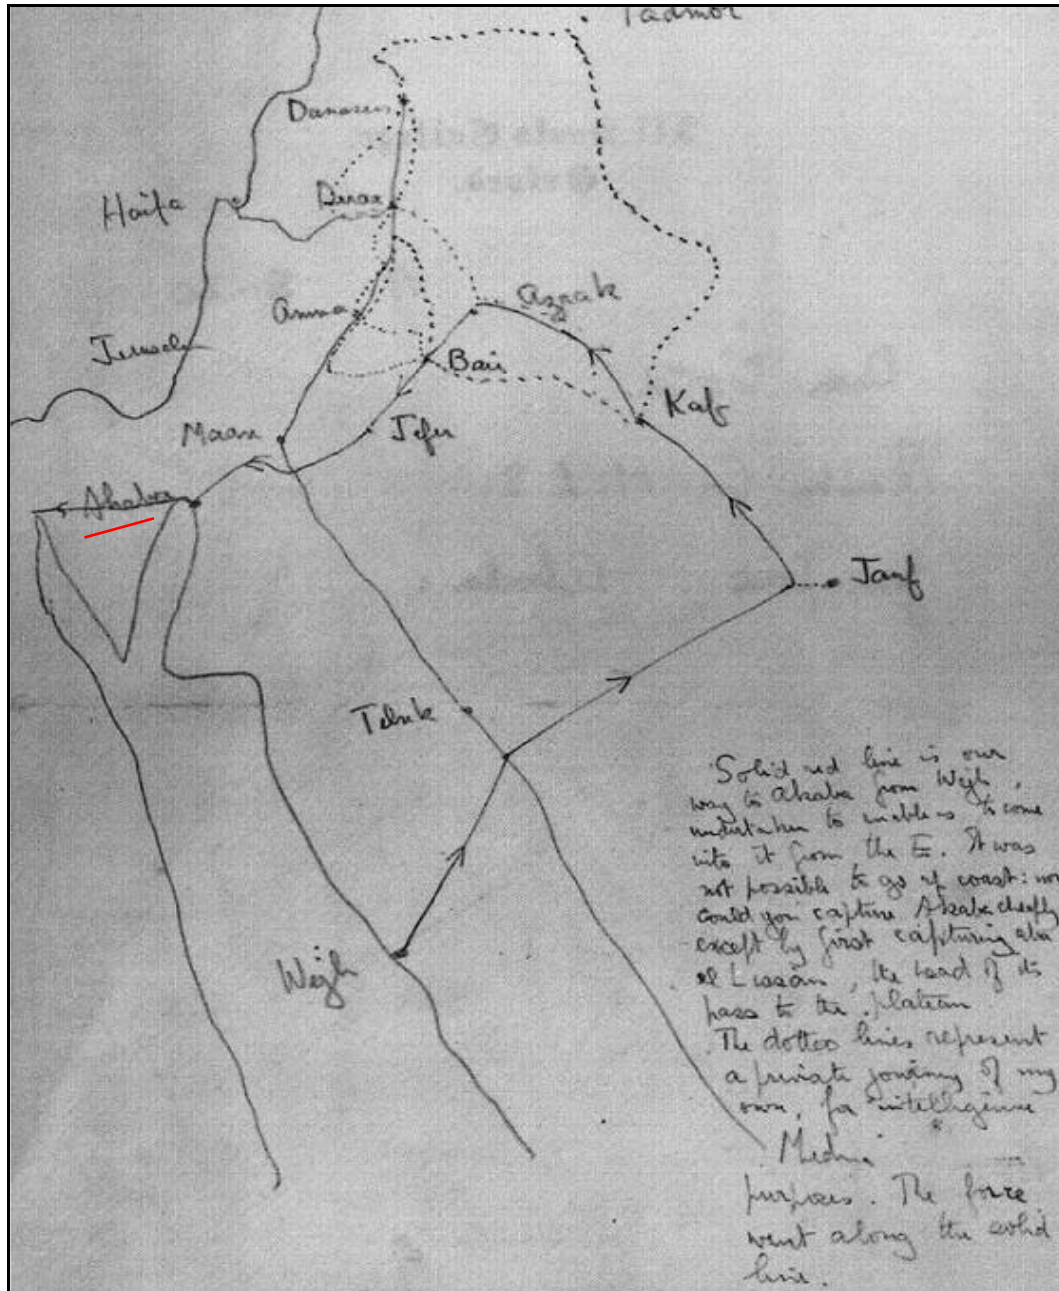 Tadmor
Damascus
Haifa
Deraa
Amman
Azrak
Jerusalem
Bair
Kaf
Maan
Jefer
Akaba
Jauf
Tebuk
Wejh
Solid red line is our
way to Akaba from Wejh,
undertaken to enable us to come
into it from the E. It was
not possible to go up coast: nor
could you capture Akaba cheaply
except by first capturing aba
el Lissan, the head of its
pass to the plateau
The dotted lines represent
a private journey of my
own, for intelligence
Medina
purposes. The force
went along the solid
line.